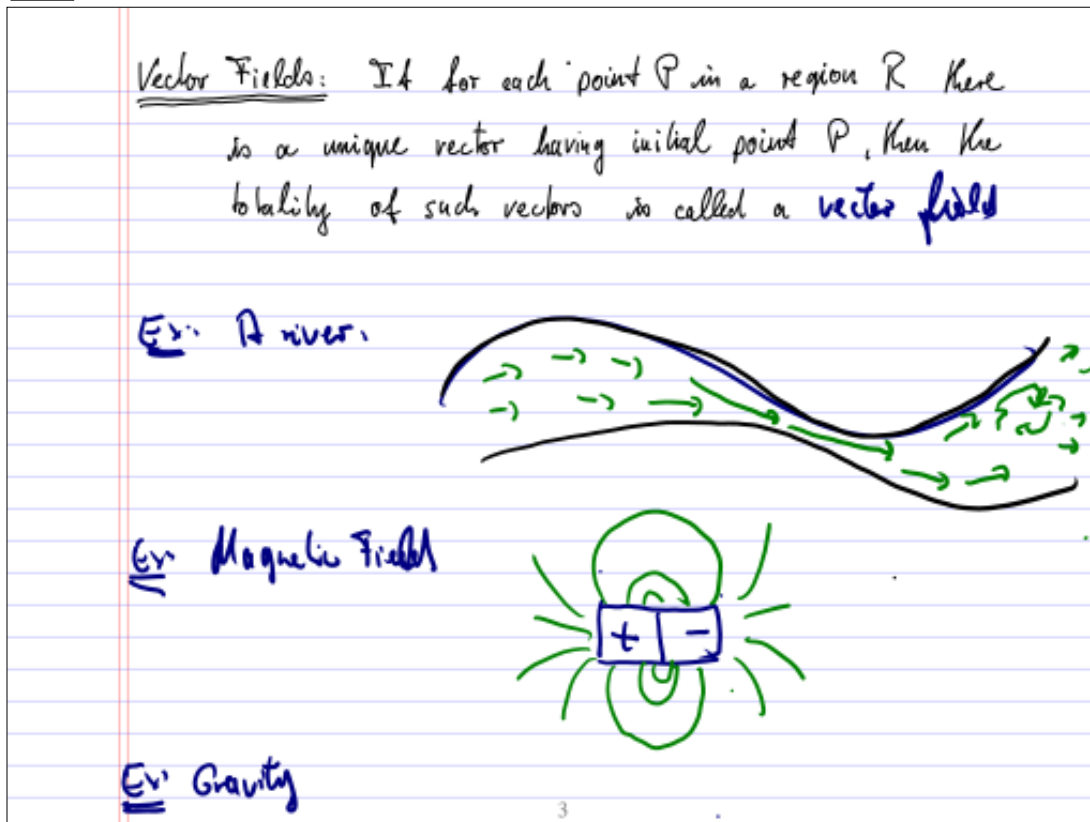 Vector Fields: If for each point P in a region R there
is a unique vector having initial point P, then the
totality of such vectors is called a vector field
Ex: A river.
Ex: Magnetic Field
+ -
Ex: Gravity
3